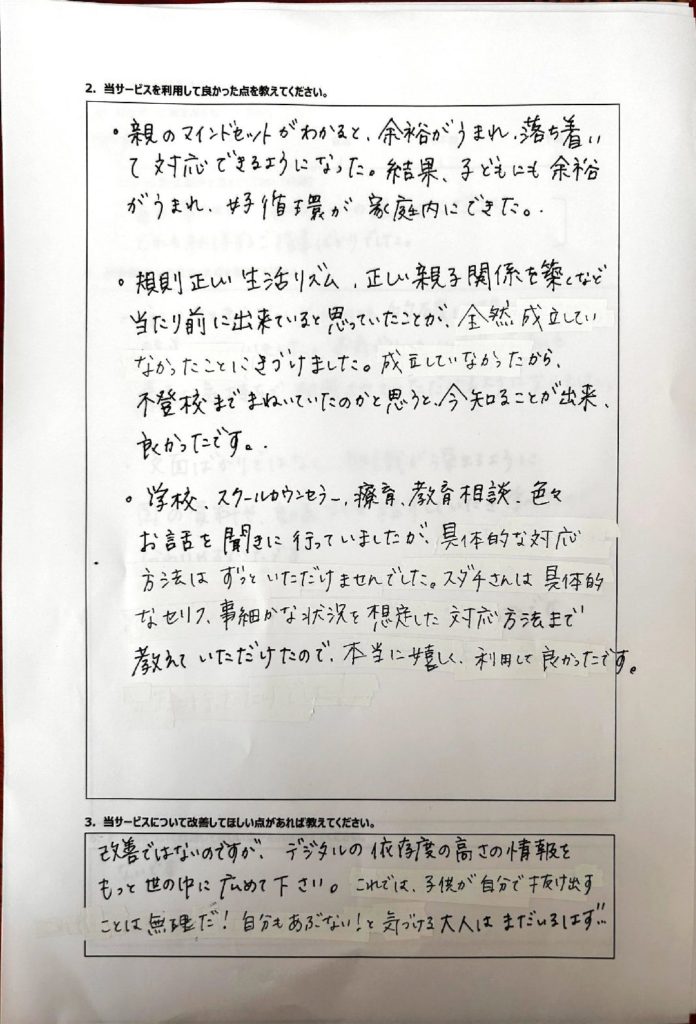 2. 当サービスを利用して良かった点を教えてください。
・親のマインドセットがわかると、余裕がうまれ、落ち着い
て対応できるようになった。結果、子どもにも余裕
がうまれ、好循環が家庭内にできた。
・規則正しい生活リズム、正しい親子関係を築くなど
当たり前に出来ていると思っていたことが、全然成立してい
なかったことにきづけました。成立していなかったから、
不登校までまねいていたのかと思うと、今知ることが出来、
良かったです。
・学校、スクールカウンセラー、療育、教育相談、色々
お話を聞きに行っていましたが、具体的な対応
方法はずっといただけませんでした。スダチさんは具体的
なセリフ、事細かな状況を想定した対応方法まで
教えていただけたので、本当に嬉しく、利用して良かったです。
3. 当サービスについて改善してほしい点があれば教えてください。
改善ではないのですが、デジタルの依存度の高さの情報を
もっと世の中に広めて下さい。これでは、子供が自分で抜け出す
ことは無理だ!自分もあぶない!と気づける大人はまだいるはず…